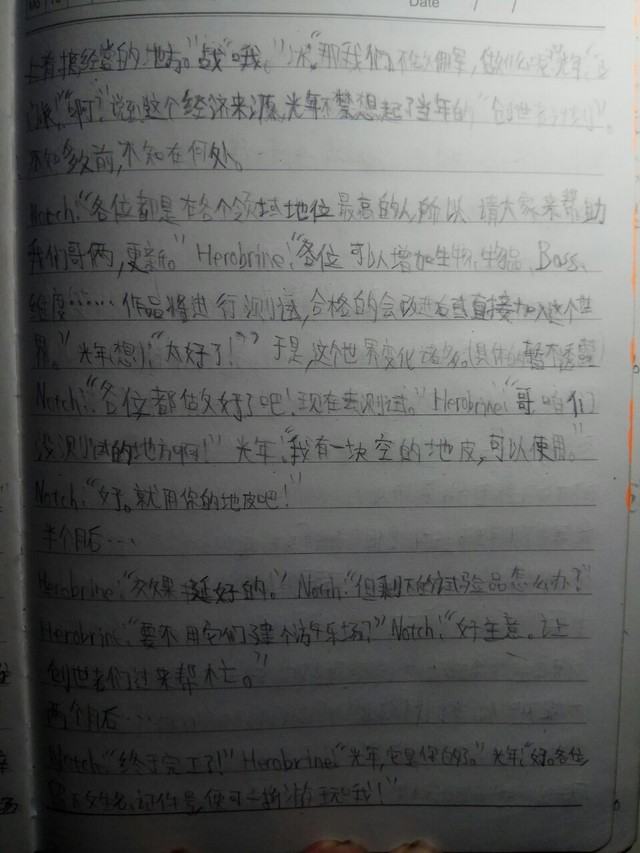 Date
上有接经营的地方。"战"哦。"冰"那我们不做佣军,做什么呢"光年"
"啊?"说到这个经济来源,光年不禁想起了当年的"创世者计划"。
不知多久前,不知在何处。
Notch:"各位都是在各个领域地位最高的人,所以,请大家来帮助
我们哥俩,更新。" Herobrine:"各位可以增加生物、物品、Boss、
维度……作品将进行测试,合格的会改进后或直接加入这个世
界。"光年(想):"太好了!" 于是,这个世界变化诸多。(具体的暂不透露)
Notch:"各位都做好了吧!现在去测试。" Herobrine:"哥,咱们
没测试的地方啊!" 光年:"我有一块空的地皮,可以使用。"
Notch:"好。就用你的地皮吧!"
半个月后…
Herobrine:"效果挺好的。" Notch:"但剩下的试验品怎么办?"
Herobrine:"要不用它们建个游乐场?" Notch:"好主意。让
创世者们过来帮忙。"
两个月后…
Notch:"终于完工了!" Herobrine:"光年,它是你的了。"光年:"好。各位
姓名,记作号,便可